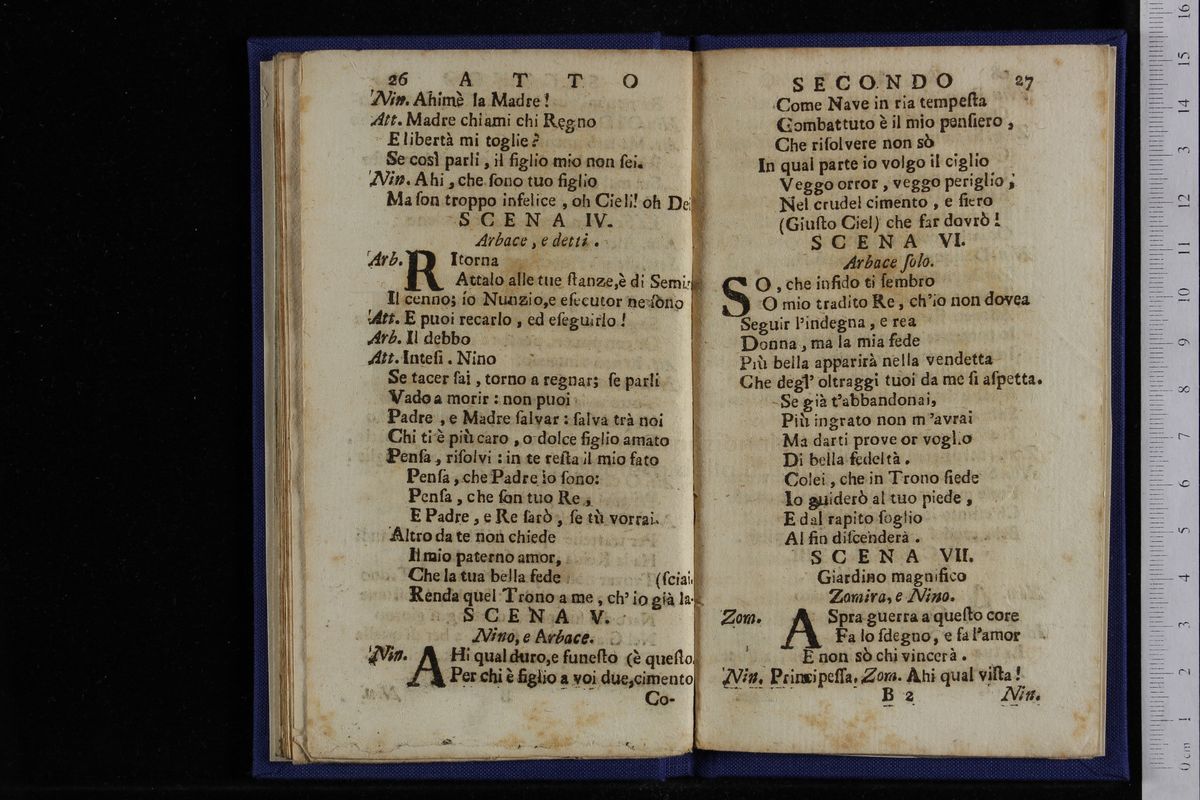 26 A T T O
Nin. Ahimè la Madre!
Att. Madre chiami chi Regno
E libertà mi toglie?
Se così parli, il figlio mio non ſei.
Nin. Ahi, che ſono tuo figlio
Ma ſon troppo infelice, oh Cieli! oh Dei
S C E N A IV.
Arbace, e detti.
Arb. RItorna
Attalo alle tue ſtanze, è di Semir.
Il cenno; io Nunzio, e eſecutor ne ſono
Att. E puoi recarlo, ed eſeguirlo!
Arb. Il debbo
Att. Inteſi. Nino
Se tacer ſai, torno a regnar; ſe parli
Vado a morir: non puoi
Padre, e Madre ſalvar: ſalva trà noi
Chi ti è più caro, o dolce figlio amato
Penſa, riſolvi: in te reſta il mio fato
Penſa, che Padre io ſono:
Penſa, che ſon tuo Re,
E Padre, e Re ſarò, ſe tù vorrai.
Altro da te non chiede
Il mio paterno amor,
Che la tua bella fede (ſciai.
Renda quel Trono a me, ch' io già la-
S C E N A V.
Nino, e Arbace.
Nin. AHi qual duro, e funeſto (è queſto
Per chi è figlio a voi due, cimento
Co-
SECONDO 27
Come Nave in ria tempeſta
Combattuto è il mio penſiero,
Che riſolvere non sò
In qual parte io volgo il ciglio
Veggo orror, veggo periglio;
Nel crudel cimento, e fiero
(Giuſto Ciel) che far dovrò!
S C E N A VI.
Arbace ſolo.
SO, che infido ti ſembro
O mio tradito Re, ch'io non dovea
Seguir l'indegna, e rea
Donna, ma la mia fede
Più bella apparirà nella vendetta
Che degl' oltraggi tuoi da me ſi aſpetta.
Se già t'abbandonai,
Più ingrato non m'avrai
Ma darti prove or voglio
Di bella fedeltà.
Colei, che in Trono ſiede
Io guiderò al tuo piede,
E dal rapito ſoglio
Al fin diſcenderà.
S C E N A VII.
Giardino magnifico
Zomira, e Nino.
Zom. ASpra guerra a queſto core
Fa lo ſdegno, e fa l'amor
E non sò chi vincerà.
Nin. Principeſſa. Zom. Ahi qual viſta!
B 2 Nin.
0 cm 1 2 3 4 5 6 7 8 9 10 11 12 13 14 15 16